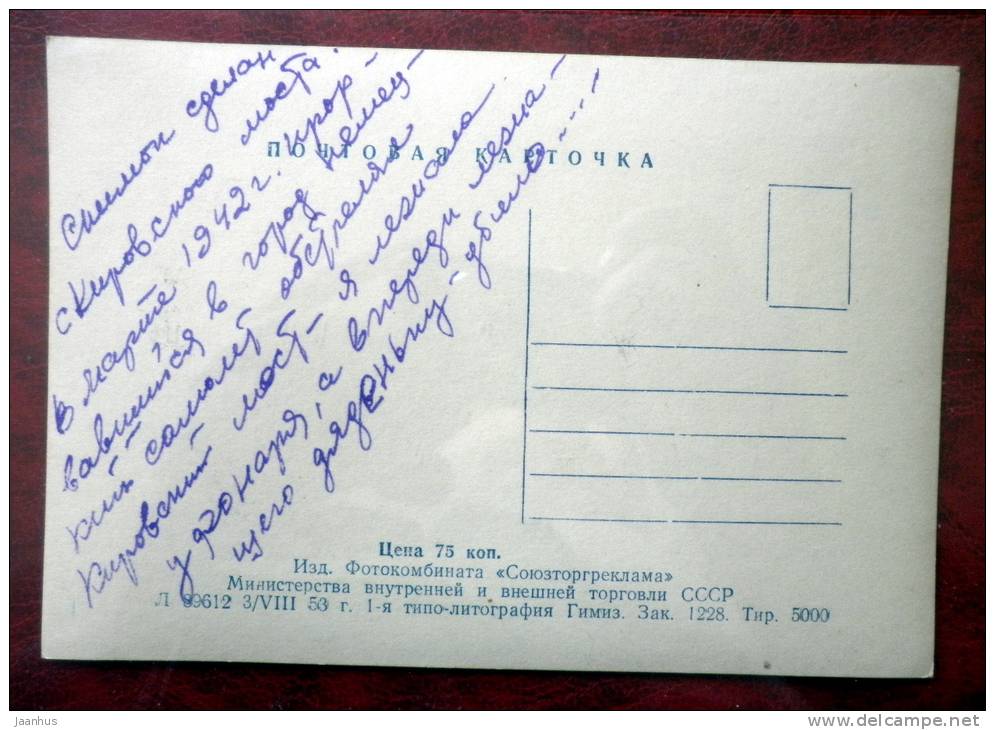 Снимок сделан
с Кировского моста.
В марте 1942 г. прор-
вавшийся в город немец-
кий самолёт обстрелял
Кировский мост – я лежала
у фонаря, а впереди лежа-
щего дяденьку – убило....!
ПОЧТОВАЯ КАРТОЧКА
Цена 75 коп.
Изд. Фотокомбината «Союзторгреклама»
Министерства внутренней и внешней торговли СССР
Л 89612 3/VIII 53 г. 1-я типо-литография Гимиз. Зак. 1228. Тир. 5000
Jaanhus
www.delcampe.net